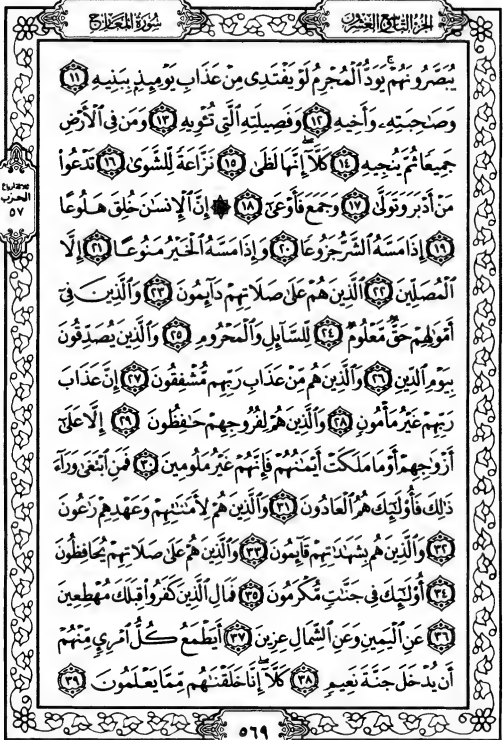 سورة المعارج
الجزء التاسع والعشرون
يُبَصَّرُونَهُمْ يَوَدُّ ٱلْمُجْرِمُ لَوْ يَفْتَدِى مِنْ عَذَابِ يَوْمِئِذٍ بِبَنِيهِ ١١
وَصَـٰحِبَتِهِۦ وَأَخِيهِ ١٢ وَفَصِيلَتِهِ ٱلَّتِى تُـْٔوِيهِ ١٣ وَمَن فِى ٱلْأَرْضِ
جَمِيعًا ثُمَّ يُنجِيهِ ١٤ كَلَّآ إِنَّهَا لَظَىٰ ١٥ نَزَّاعَةً لِّلشَّوَىٰ ١٦ تَدْعُوا۟
مَنْ أَدْبَرَ وَتَوَلَّىٰ ١٧ وَجَمَعَ فَأَوْعَىٰٓ ١٨ ۞ إِنَّ ٱلْإِنسَـٰنَ خُلِقَ هَلُوعًا
١٩ إِذَا مَسَّهُ ٱلشَّرُّ جَزُوعًا ٢٠ وَإِذَا مَسَّهُ ٱلْخَيْرُ مَنُوعًا ٢١ إِلَّا
ٱلْمُصَلِّينَ ٢٢ ٱلَّذِينَ هُمْ عَلَىٰ صَلَاتِهِمْ دَآئِمُونَ ٢٣ وَٱلَّذِينَ فِىٓ
أَمْوَٰلِهِمْ حَقٌّ مَّعْلُومٌ ٢٤ لِّلسَّآئِلِ وَٱلْمَحْرُومِ ٢٥ وَٱلَّذِينَ يُصَدِّقُونَ
بِيَوْمِ ٱلدِّينِ ٢٦ وَٱلَّذِينَ هُم مِّنْ عَذَابِ رَبِّهِم مُّشْفِقُونَ ٢٧ إِنَّ عَذَابَ
رَبِّهِمْ غَيْرُ مَأْمُونٍ ٢٨ وَٱلَّذِينَ هُمْ لِفُرُوجِهِمْ حَـٰفِظُونَ ٢٩ إِلَّا عَلَىٰٓ
أَزْوَٰجِهِمْ أَوْ مَا مَلَكَتْ أَيْمَـٰنُهُمْ فَإِنَّهُمْ غَيْرُ مَلُومِينَ ٣٠ فَمَنِ ٱبْتَغَىٰ وَرَآءَ
ذَٰلِكَ فَأُو۟لَـٰٓئِكَ هُمُ ٱلْعَادُونَ ٣١ وَٱلَّذِينَ هُمْ لِأَمَـٰنَـٰتِهِمْ وَعَهْدِهِمْ رَٰعُونَ
٣٢ وَٱلَّذِينَ هُم بِشَهَـٰدَٰتِهِمْ قَآئِمُونَ ٣٣ وَٱلَّذِينَ هُمْ عَلَىٰ صَلَاتِهِمْ يُحَافِظُونَ
٣٤ أُو۟لَـٰٓئِكَ فِى جَنَّـٰتٍ مُّكْرَمُونَ ٣٥ فَمَالِ ٱلَّذِينَ كَفَرُوا۟ قِبَلَكَ مُهْطِعِينَ
٣٦ عَنِ ٱلْيَمِينِ وَعَنِ ٱلشِّمَالِ عِزِينَ ٣٧ أَيَطْمَعُ كُلُّ ٱمْرِئٍ مِّنْهُمْ
أَن يُدْخَلَ جَنَّةَ نَعِيمٍ ٣٨ كَلَّآ إِنَّا خَلَقْنَـٰهُم مِّمَّا يَعْلَمُونَ ٣٩
الحزب
٥٧
٥٦٩